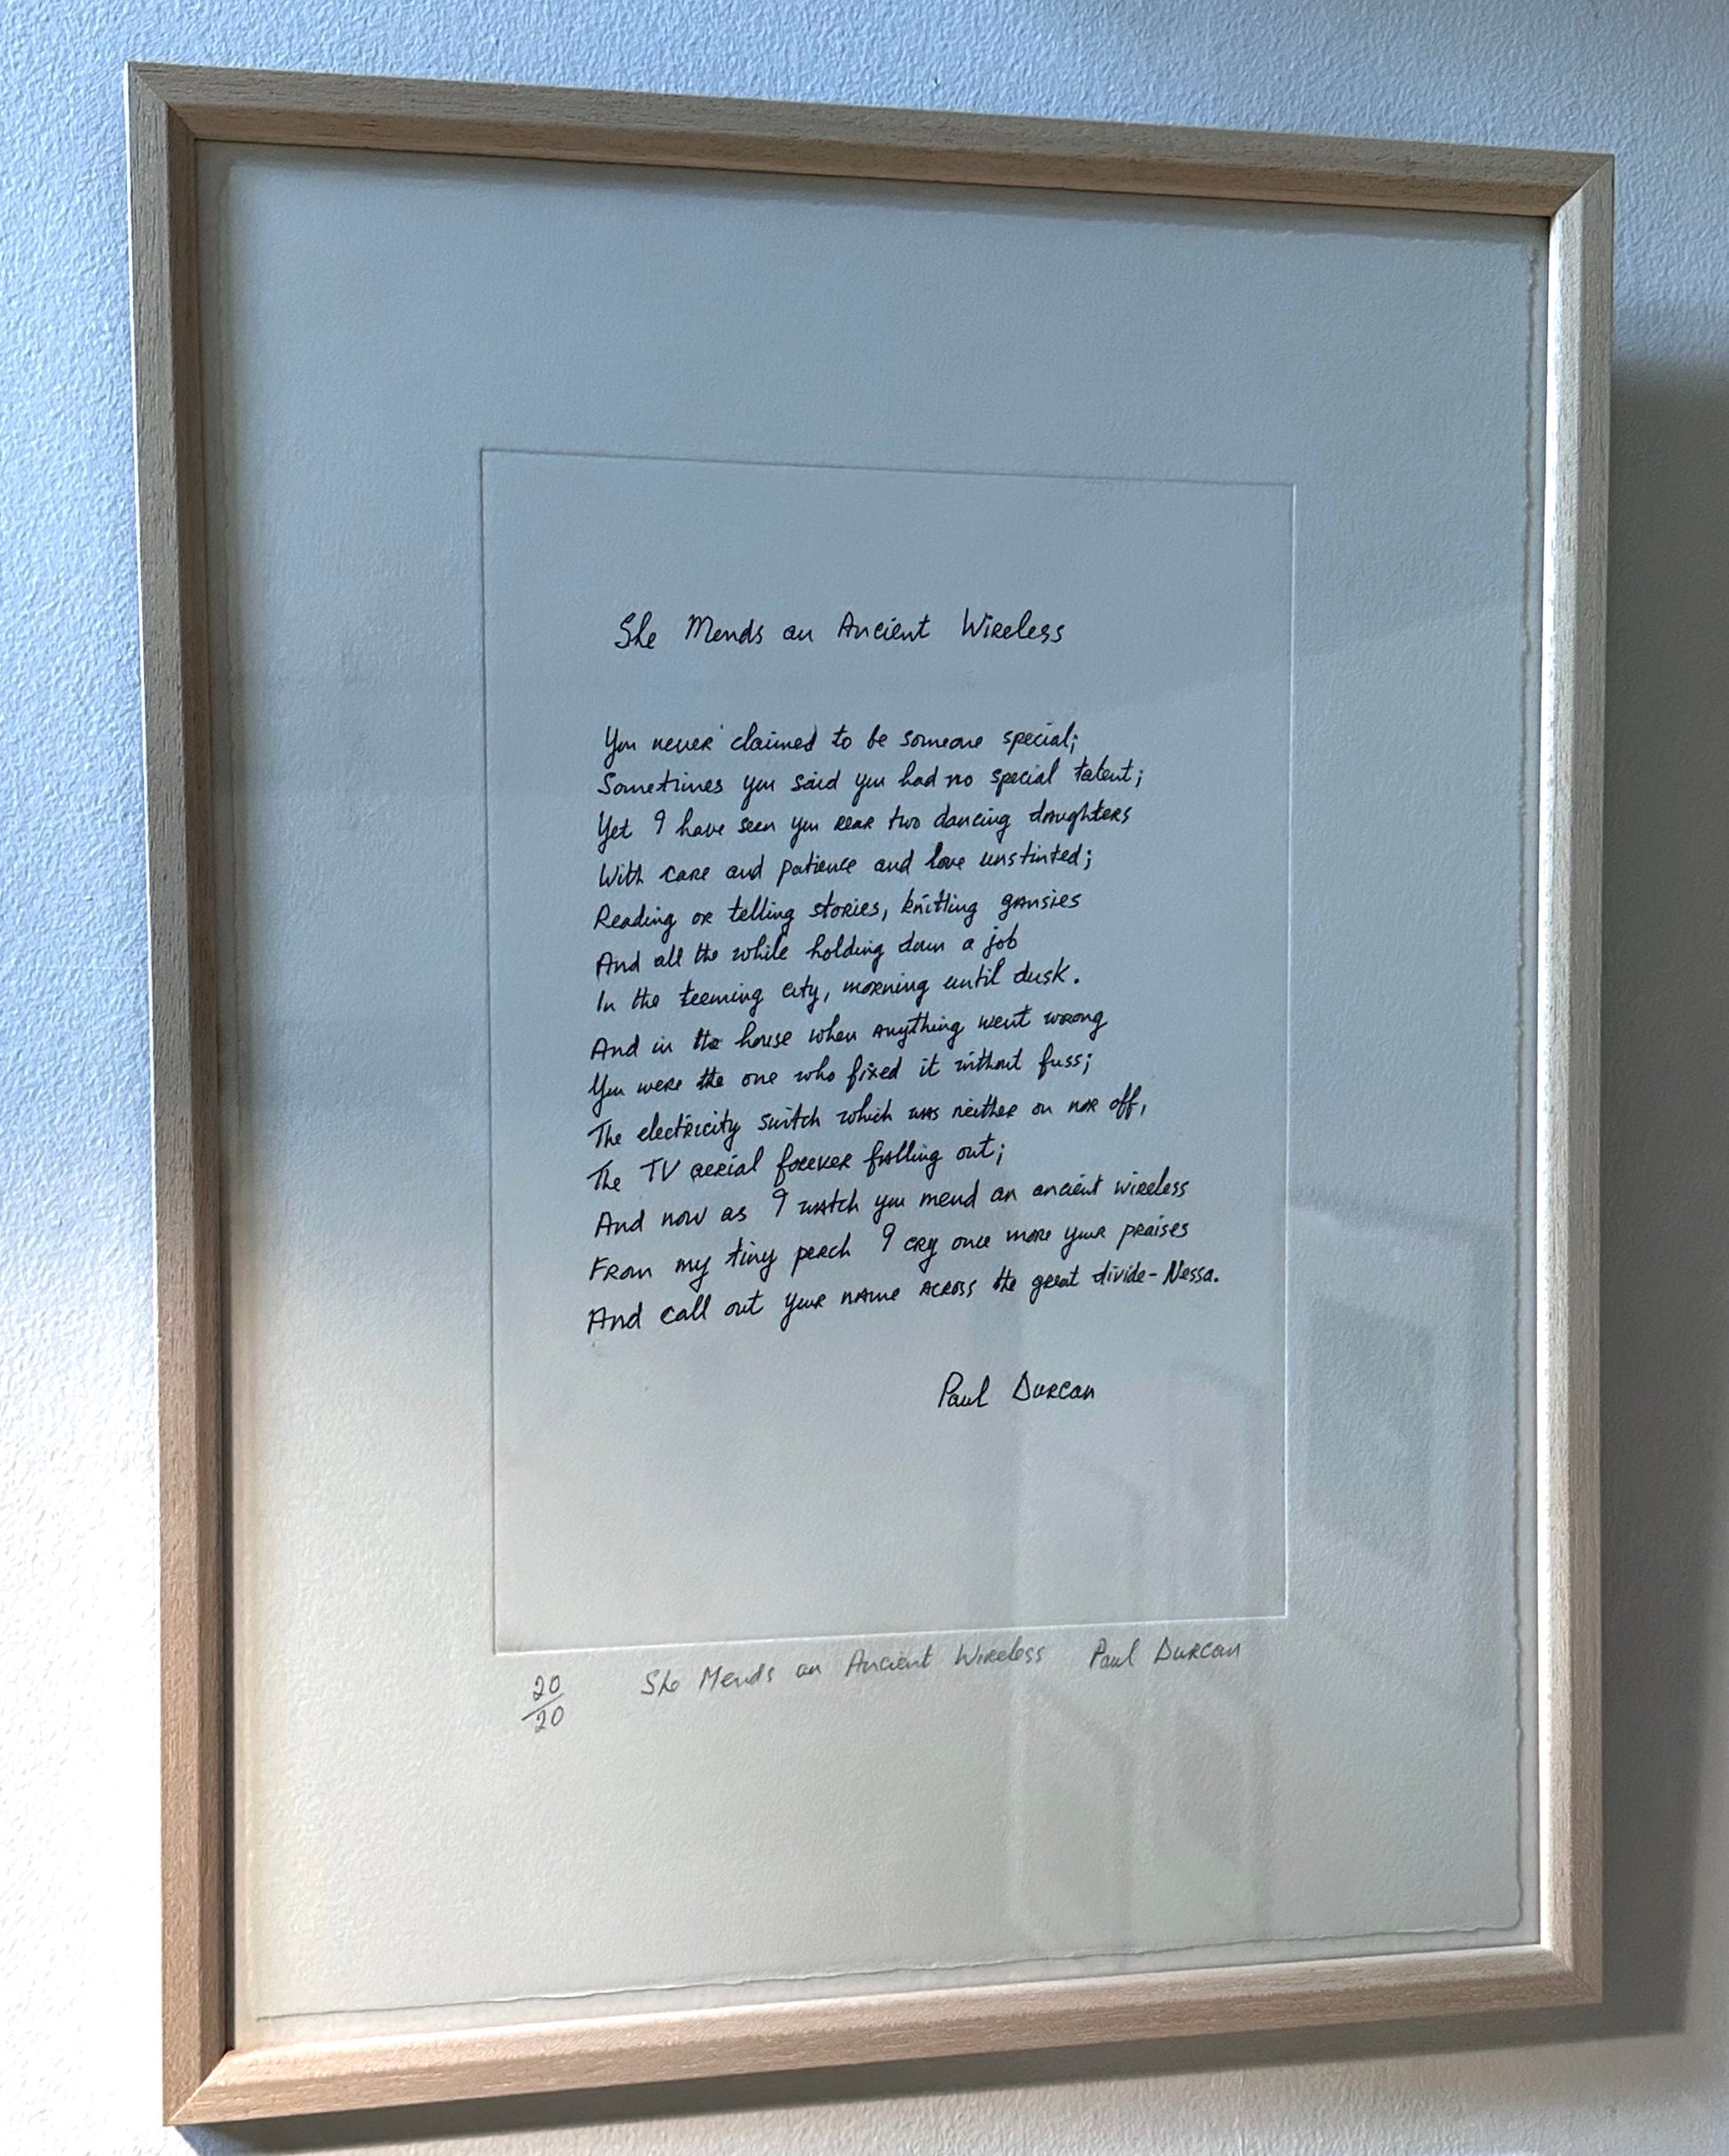 She Mends an Ancient Wireless
You never claimed to be someone special;
Sometimes you said you had no special talent;
Yet I have seen you rear two dancing daughters
With care and patience and love unstinted;
Reading or telling stories, knitting gansies
And all the while holding down a job
In the teeming city, morning until dusk.
And in the house when anything went wrong
You were the one who fixed it without fuss;
The electricity switch which was neither on nor off,
The TV aerial forever falling out;
And now as I watch you mend an ancient wireless
From my tiny perch I cry once more your praises
And call out your name across the great divide - Nessa.
Paul Durcan
20/20 She Mends an Ancient Wireless Paul Durcan